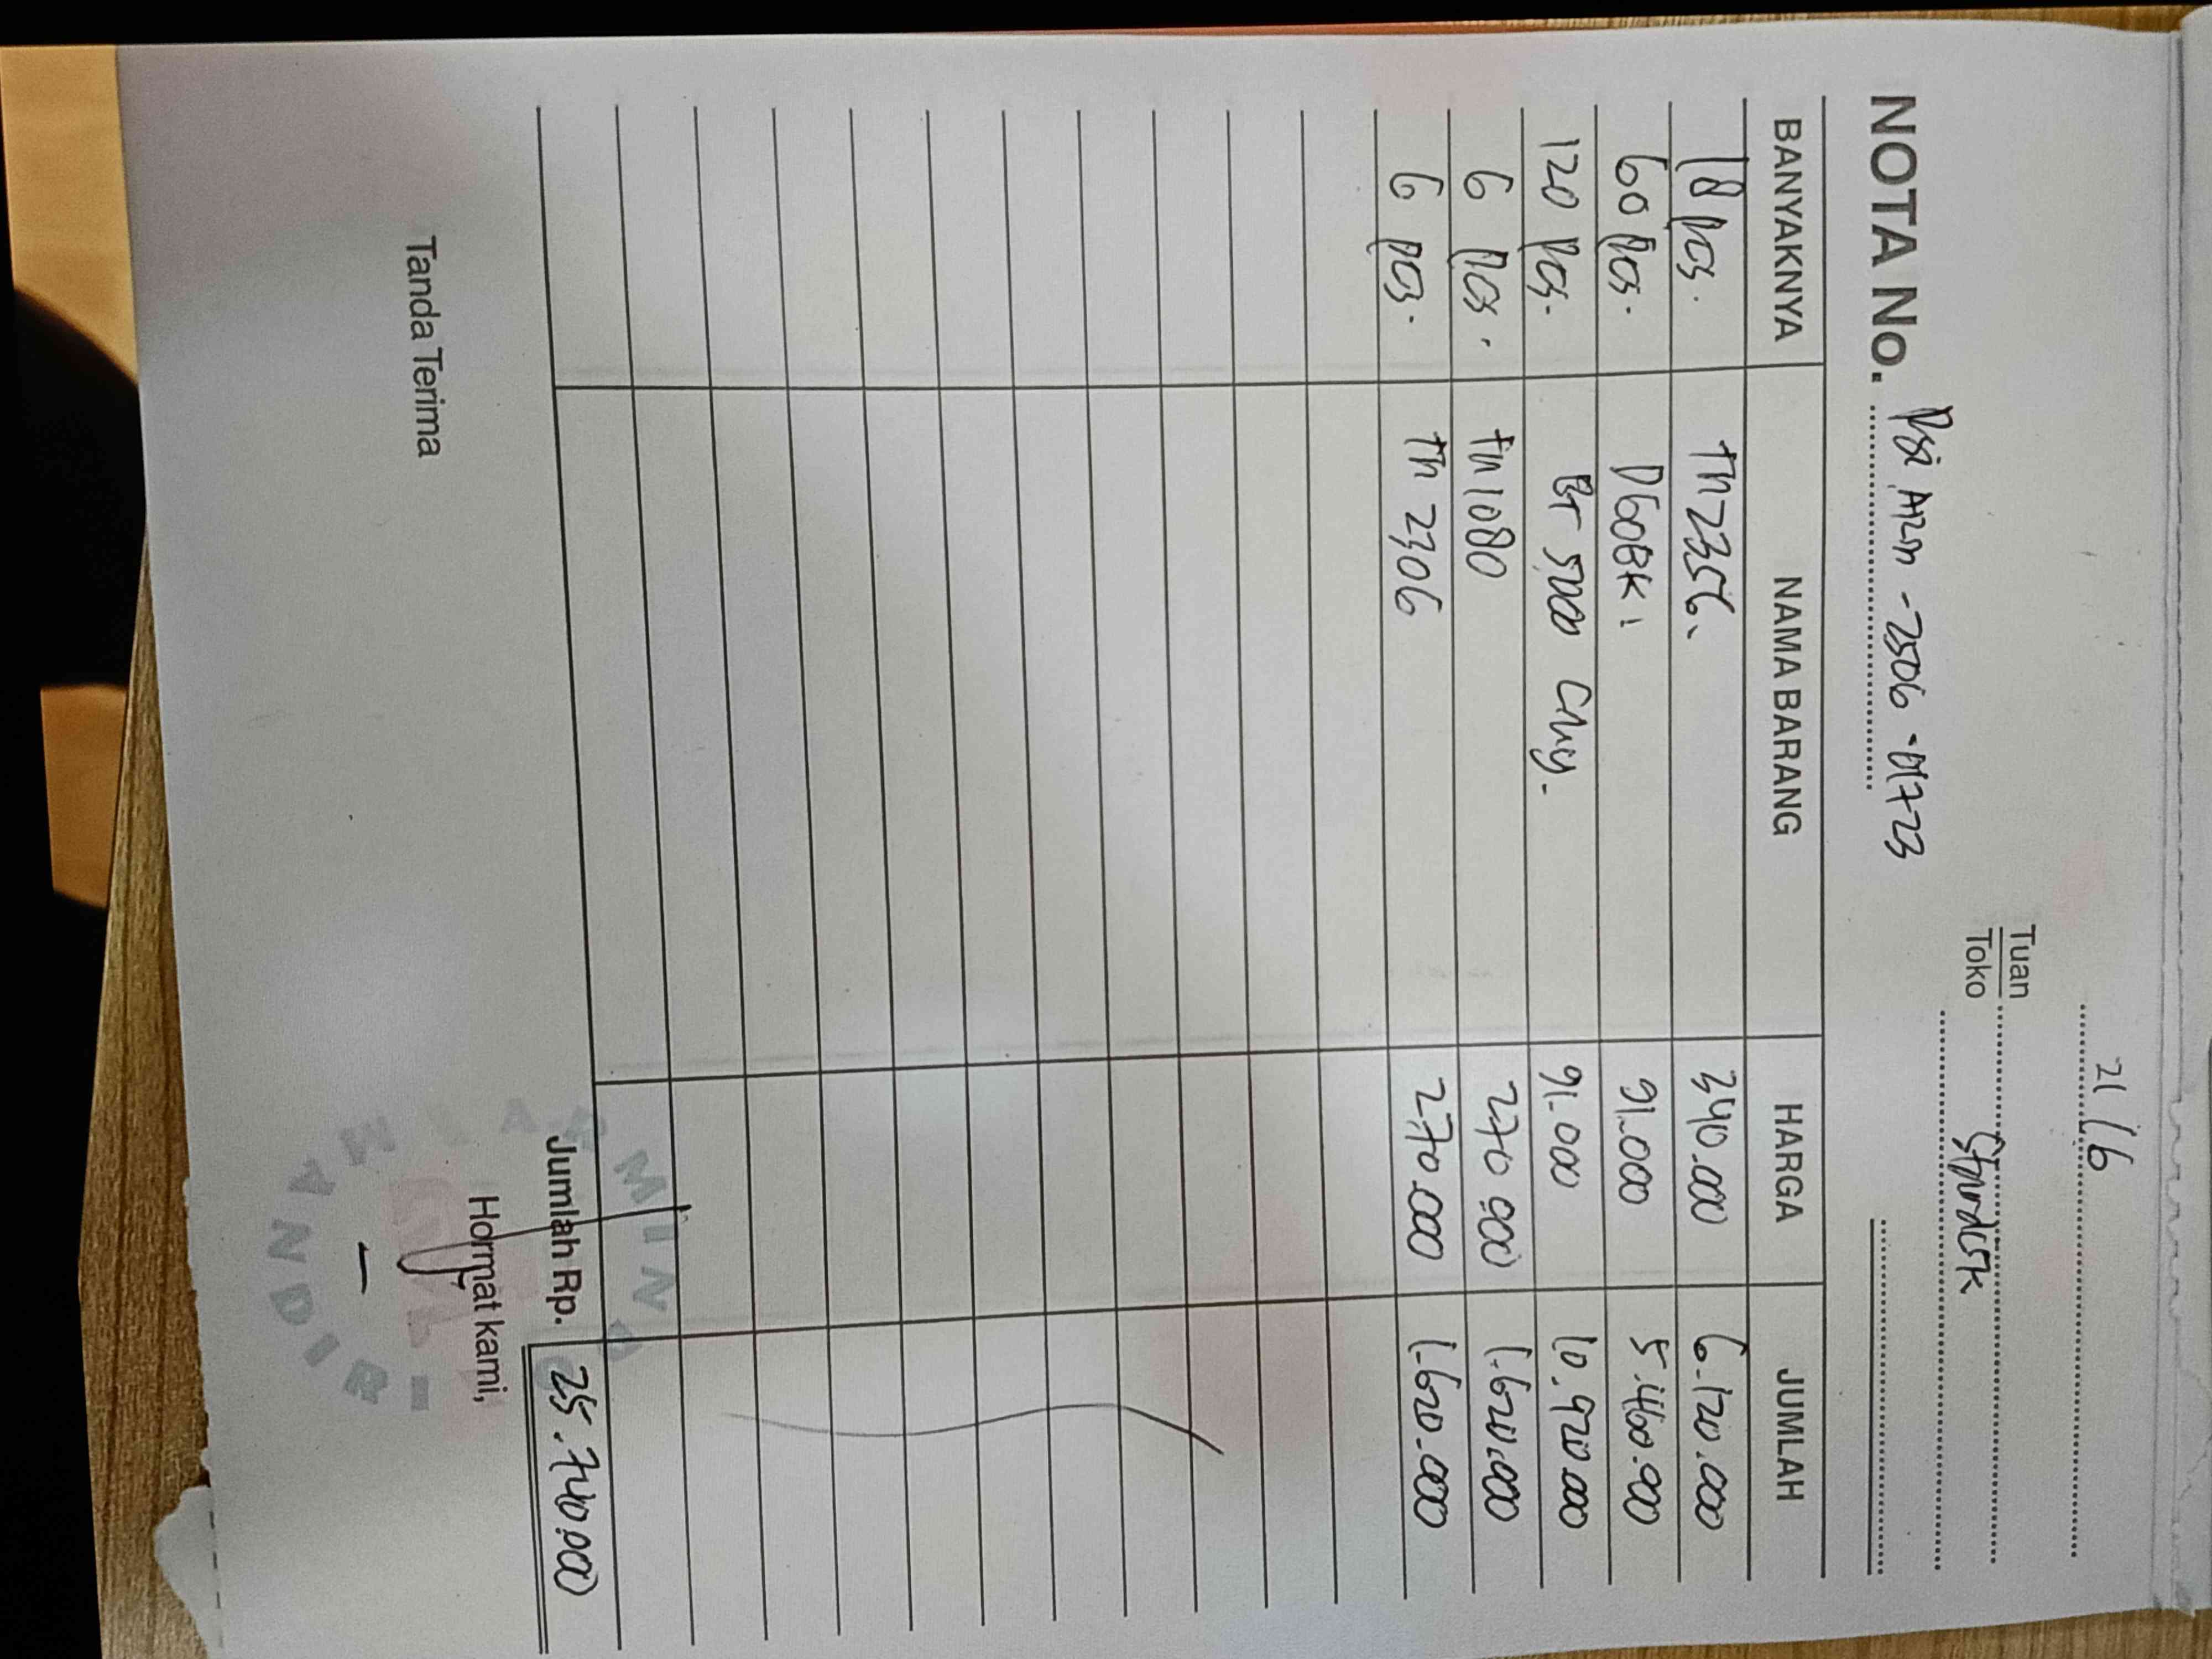 21/6
Tuan
Toko
NOTA No. 2506 - 01723
BANYAKNYA NAMA BARANG HARGA JUMLAH
18 pcs. th2356. 340.000 6.120.000
60 pcs. D600BK 91.000 5.460.000
120 pcs. BT 5000 91.000 10.920.000
6 pcs. th1080 270.000 1.620.000
6 pcs. th 2306 270.000 1.620.000
Jumlah Rp. 25.740.000
Tanda Terima Hormat kami,
MANDIRI